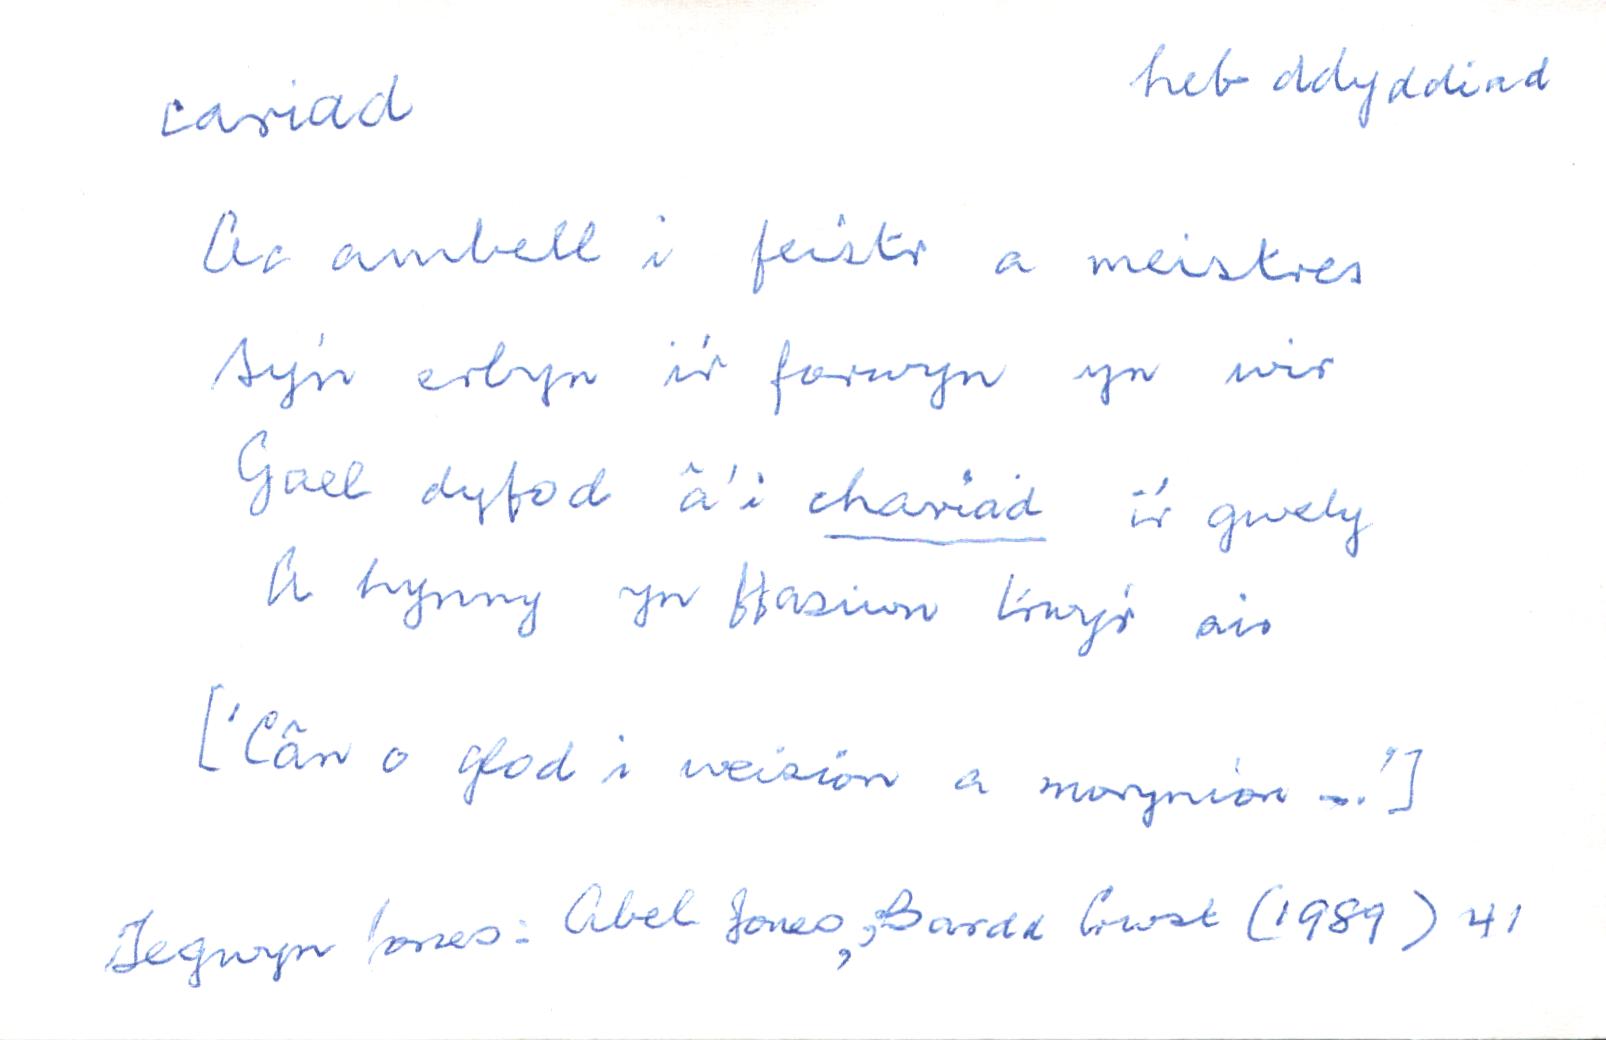 cariad
heb ddyddiad
Ac ambell i feistr a meistres
Sy'n erbyn i'r forwyn yn wir
Gael dyfod â'i chariad i'r gwely
A hynny yn ffasiwn trwy'r sir
['Cân o glod i weision a morynion ...']
Tegwyn Jones: Abel Jones, 'Bardd Crwst' (1989) 41